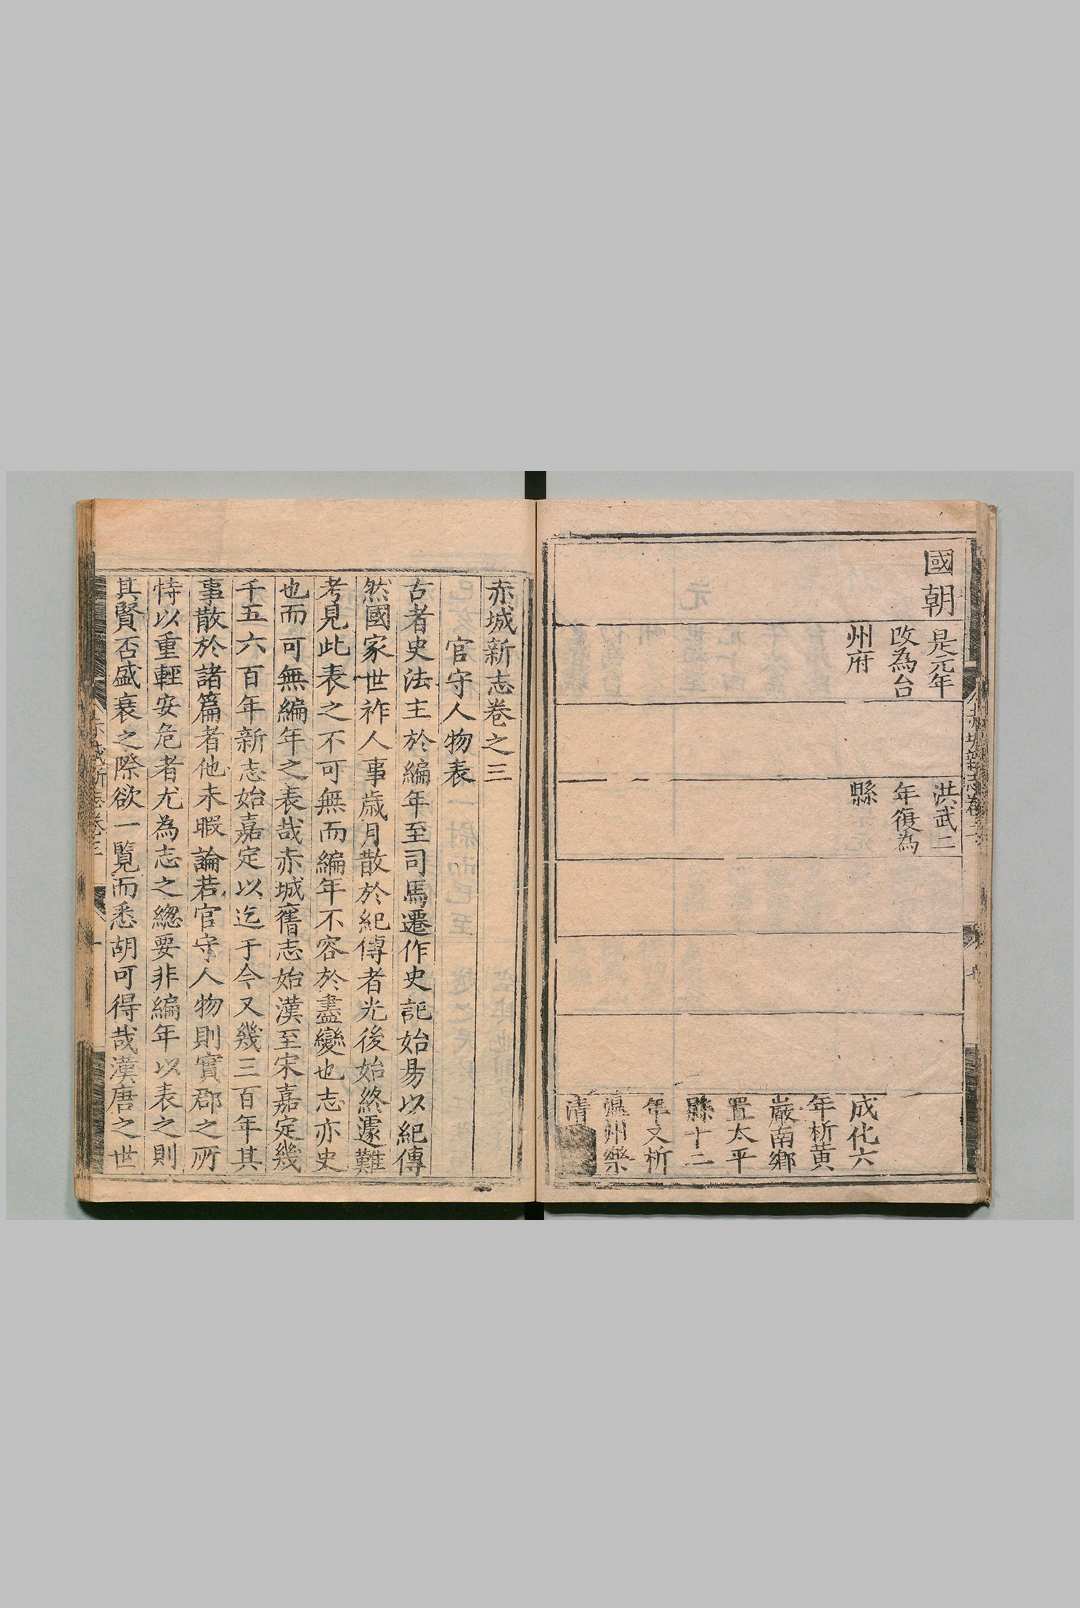 國朝
是元年
改為台
州府
洪武二
年復為
縣
成化六
年析黄
巖南鄉
置太平
縣十二
年又析
温州樂
清
赤城新志卷之三
官守人物表
古者史法主於編年至司馬遷作史記始易以紀傳
然國家世祚人事歲月散於紀傳者先後始終遽難
考見此表之不可無而編年不容於盡變也志亦史
也而可無編年之表哉赤城舊志始漢至宋嘉定幾
千五六百年新志始嘉定以迄于今又幾三百年其
事散於諸篇者他未暇論若官守人物則實郡之所
恃以重輕安危者尤為志之緫要非編年以表之則
其賢否盛衰之際欲一覽而悉胡可得哉漢唐之世
赤城新志卷三
一